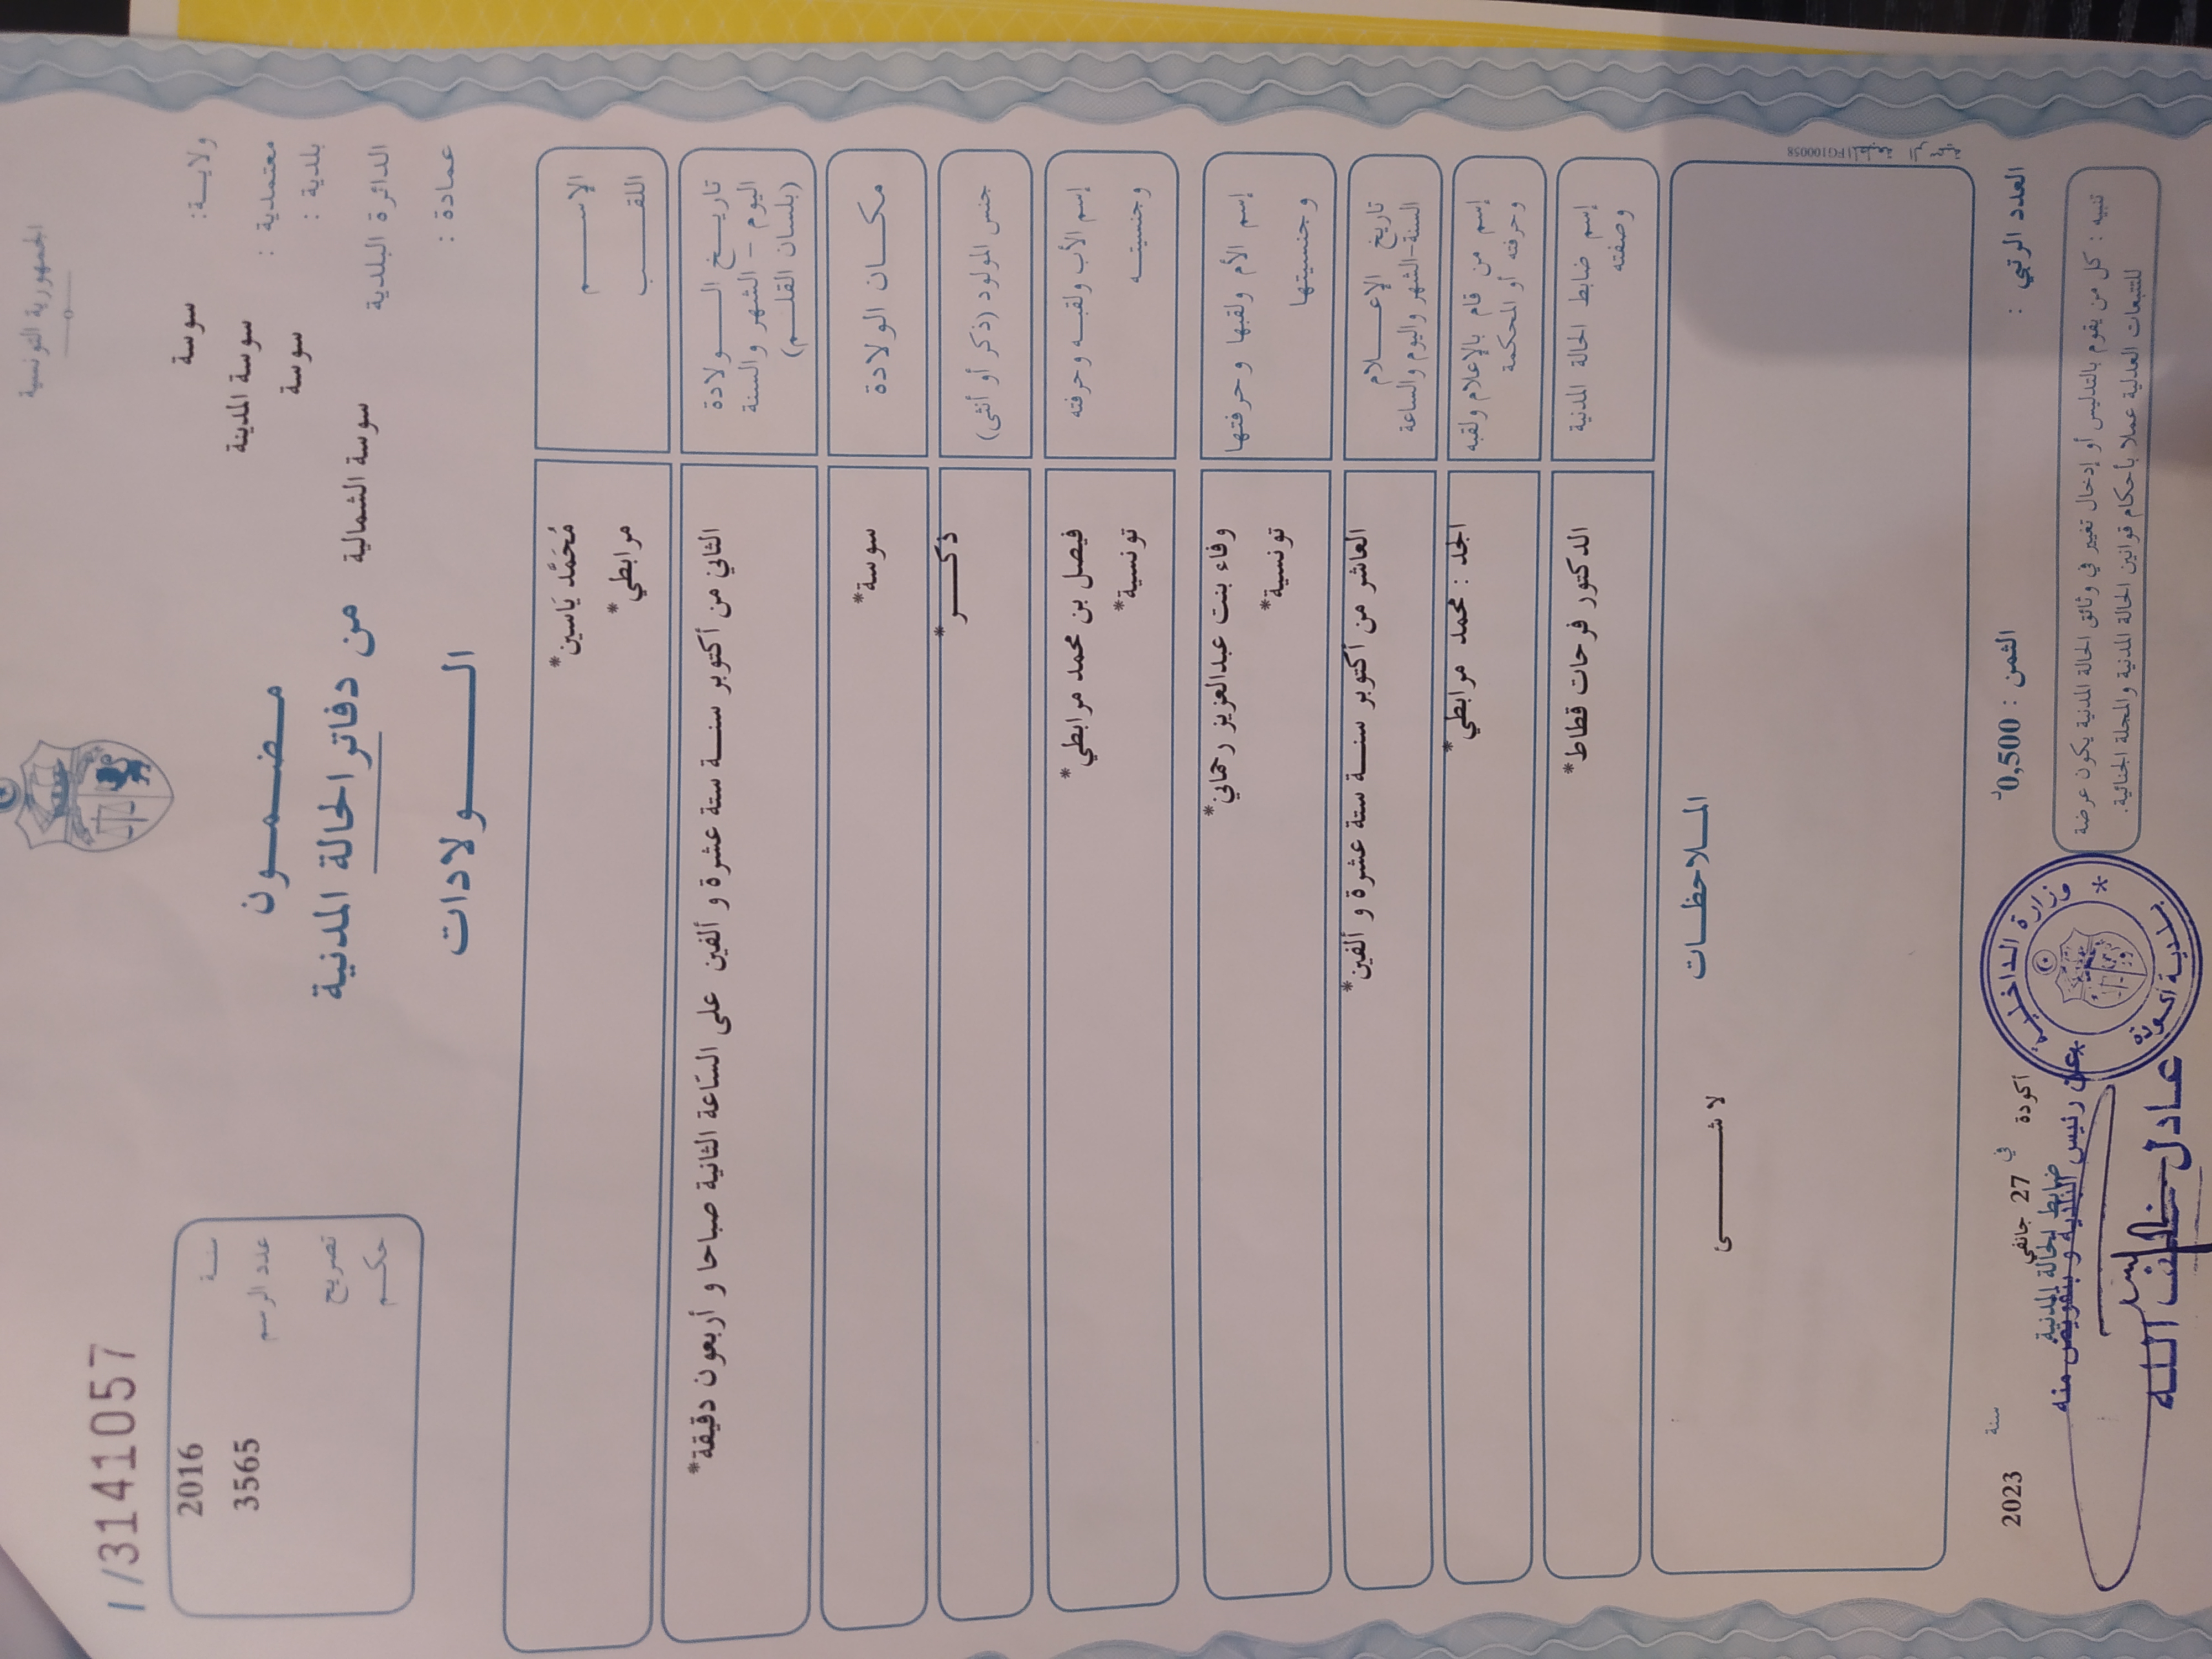 الجمهورية التونسية
1/31411057
ولايـة: سوسة
معتمدية : سوسة المدينة
بلدية : سوسة
الدائرة البلدية سوسة الشمالية
عمادة :
سنـة 2016
عدد الرسم 3565
تصريح
حكـم
مضـمـون
من دفاتر الحالة المدنية
الـــولادات
الإســـم مُحَمَّد يَاسين*
اللقـــب مرابطي*
تاريـخ الــولادة
اليوم - الشهر والسنة
(بلسان القلـم)
الثاني من أكتوبر سنـة ستة عشرة و ألفين على السّاعة الثانية صباحا و أربعون دقيقة*
مكـان الولادة سوسة*
جنس المولود (ذكر أو أنثى) ذكـــر*
إسم الأب ولقبـه وحرفته فيصل بن محمد مرابطي*
وجنسيتـه تونسية*
إسم الأم ولقبها وحرفتها وفاء بنت عبدالعزيز رحماني*
وجنسيتها تونسية*
تاريخ الإعــلام
السنة-الشهر واليوم والساعة
العاشر من أكتوبر سنـة ستة عشرة و ألفين*
إسم من قام بالإعلام ولقبه
وحرفته أو المحكمة
الجد : محمد مرابطي*
إسم ضابط الحالة المدنية
وصفته
الدكتور فرحات قطاط*
المـلاحظـات
لا شـــــئ
1FG100058
العدد الرتبي :
الثمن : 0,500د
أكودة في 27 جانفي سنة 2023
ضابط الحالة المدنية
عن رئيس البلدية و بتفويض منه
عـادل خلف اللـه
وزارة الداخلية
بلدية أكودة
تنبيه : كل من يقوم بالتدليس أو إدخال تغيير في وثائق الحالة المدنية يكون عرضة
للتتبعات العدلية عملا بأحكام قوانين الحالة المدنية والمجلة الجنائية.